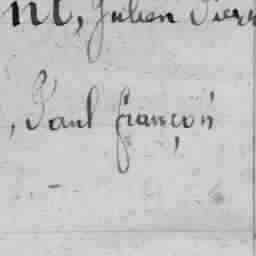 nt, Julien Pierr
, Paul françois